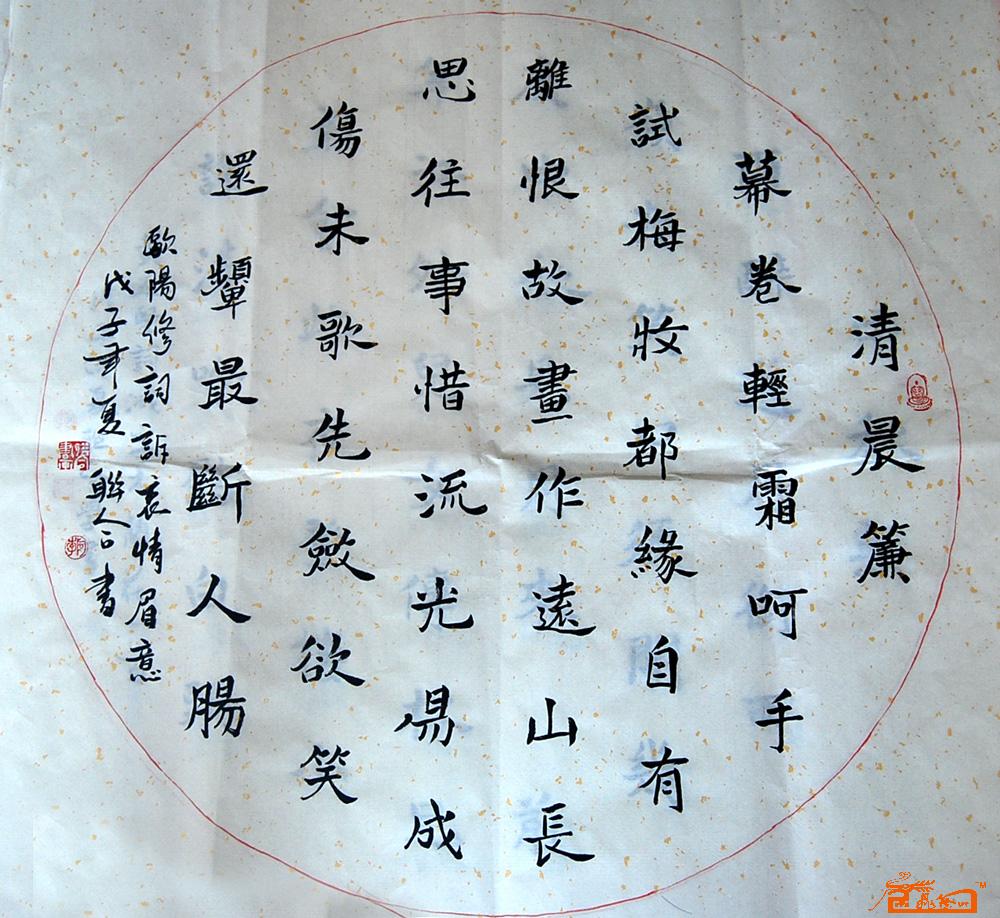 清晨簾
幕卷輕霜呵手
試梅妝都緣自有
離恨故畫作遠山長
思往事惜流光易成
傷未歌先斂欲笑
還顰最斷人腸
歐陽修詞訴哀情眉意
戊子年夏聯合書